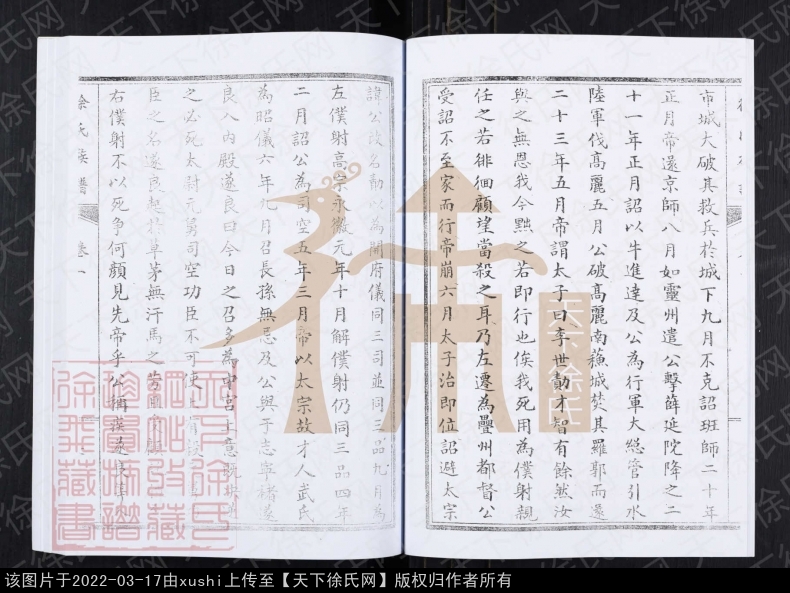 市城大破其救兵於城下九月不克詔班師二十年
正月帝還京師八月如靈州遣公擊薛延陀降之二
十一年正月詔以牛進達及公為行軍大總管引水
陸軍伐高麗五月公破高麗南蘇城焚其羅郭而還
二十三年五月帝謂太子曰李世勣才智有餘然汝
與之無恩我今黜之若即行也俟我死用為僕射親
任之若徘徊顧望當殺之耳乃左遷為疊州都督公
受詔不至家而行帝崩六月太子治即位詔避太宗
諱公改名勣以為開府儀同三司並同三品九月為
左僕射高宗永徽元年十月解僕射仍同三品四年
二月詔公為司空五年三月帝以太宗故才人武氏
為昭儀六年九月召長孫無忌及公與于志寧褚遂
良入內殿遂良曰今日之召多為中宮上意既
之必死太尉元舅司空功臣不可使上有
臣之名遂良起於草茅無汗馬之勞
右僕射不以死爭何顏見先帝乎公稱疾
徐氏族譜 卷一
天下徐氏
天下徐氏网
该图片于2022-03-17由xushi上传至【天下徐氏网】版权归作者所有